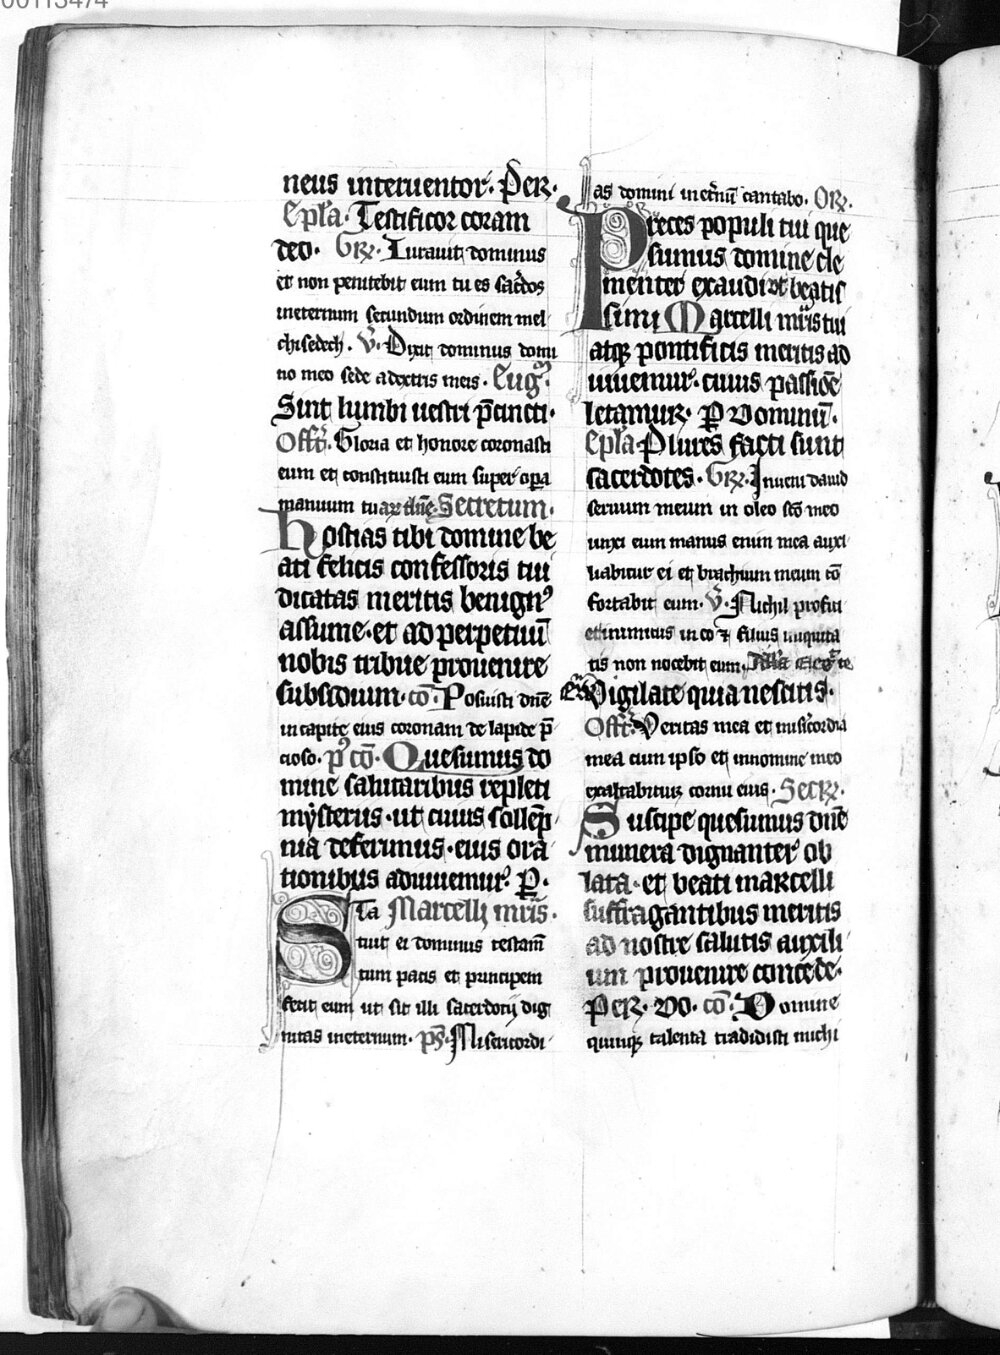 00113474
neus interuentor. Per.
Ep̄la. Testificor coram
deo. Gr̄. Iurauit dominus
et non penitebit eum tu es sac̄dos
ineternum secundum ordinem mel
chisedech. V̄. Dixit dominus domi
no meo sede adextris meis. Euḡ.
Sint lumbi uestri p̄cincti.
Offr̄. Gloria et honore coronasti
eum et constituisti eum super opa
manuum tuaꝝ dn̄e. Secretum.
hostias tibi domine be
ati felicis confessoris tui
dicatas meritis benignꝰ
assume. et ad perpetuū
nobis tribue prouenire
subsidium. cō. Posuisti dn̄e
in capite eius coronam de lapide p̄
cioso. pꝰ cō. Quesumus do
mine salutaribus repleti
mẏsteriis. ut cuius sollēp
nia deferimus. eius ora
tionibus adiuuemur. P̄.
Sta Marcelli mr̄is.
tuit ei dominus testam̄
tum pacis et principem
fecit eum ut sit illi sacerdotij dig
nitas ineternum. ps̄. Misericordi
as domini in et̄nū cantabo. Or̄.
Preces populi tui que
sumus domine cle
menter exaudi ut beatis
simi Marcelli mr̄is tui
atqꝫ pontificis meritis ad
iuuemur. cuius passiōe
letamur. P̄ Dominū.
Ep̄la. Plures facti sunt
sacerdotes. Gr̄. Inueni dauid
seruum meum in oleo sc̄o meo
unxi eum manus enim mea auxi
liabitur ei et brachium meum cō
fortabit eum. V̄. Nichil profici
et inimicus in eo ⁊ filius iniquita
tis non nocebit eum.
Vigilate quia nescitis.
Offr̄. Veritas mea et mis̄icordia
mea cum ipso et innomine meo
exaltabitur cornu eius. Secr̄.
Suscipe quesumus dn̄e
munera dignanter ob
lata. et beati marcelli
suffragantibus meritis
ad nostre salutis auxili
um prouenire concede.
Per. Do. cō. Domine
quinqꝫ talenta tradidisti michi